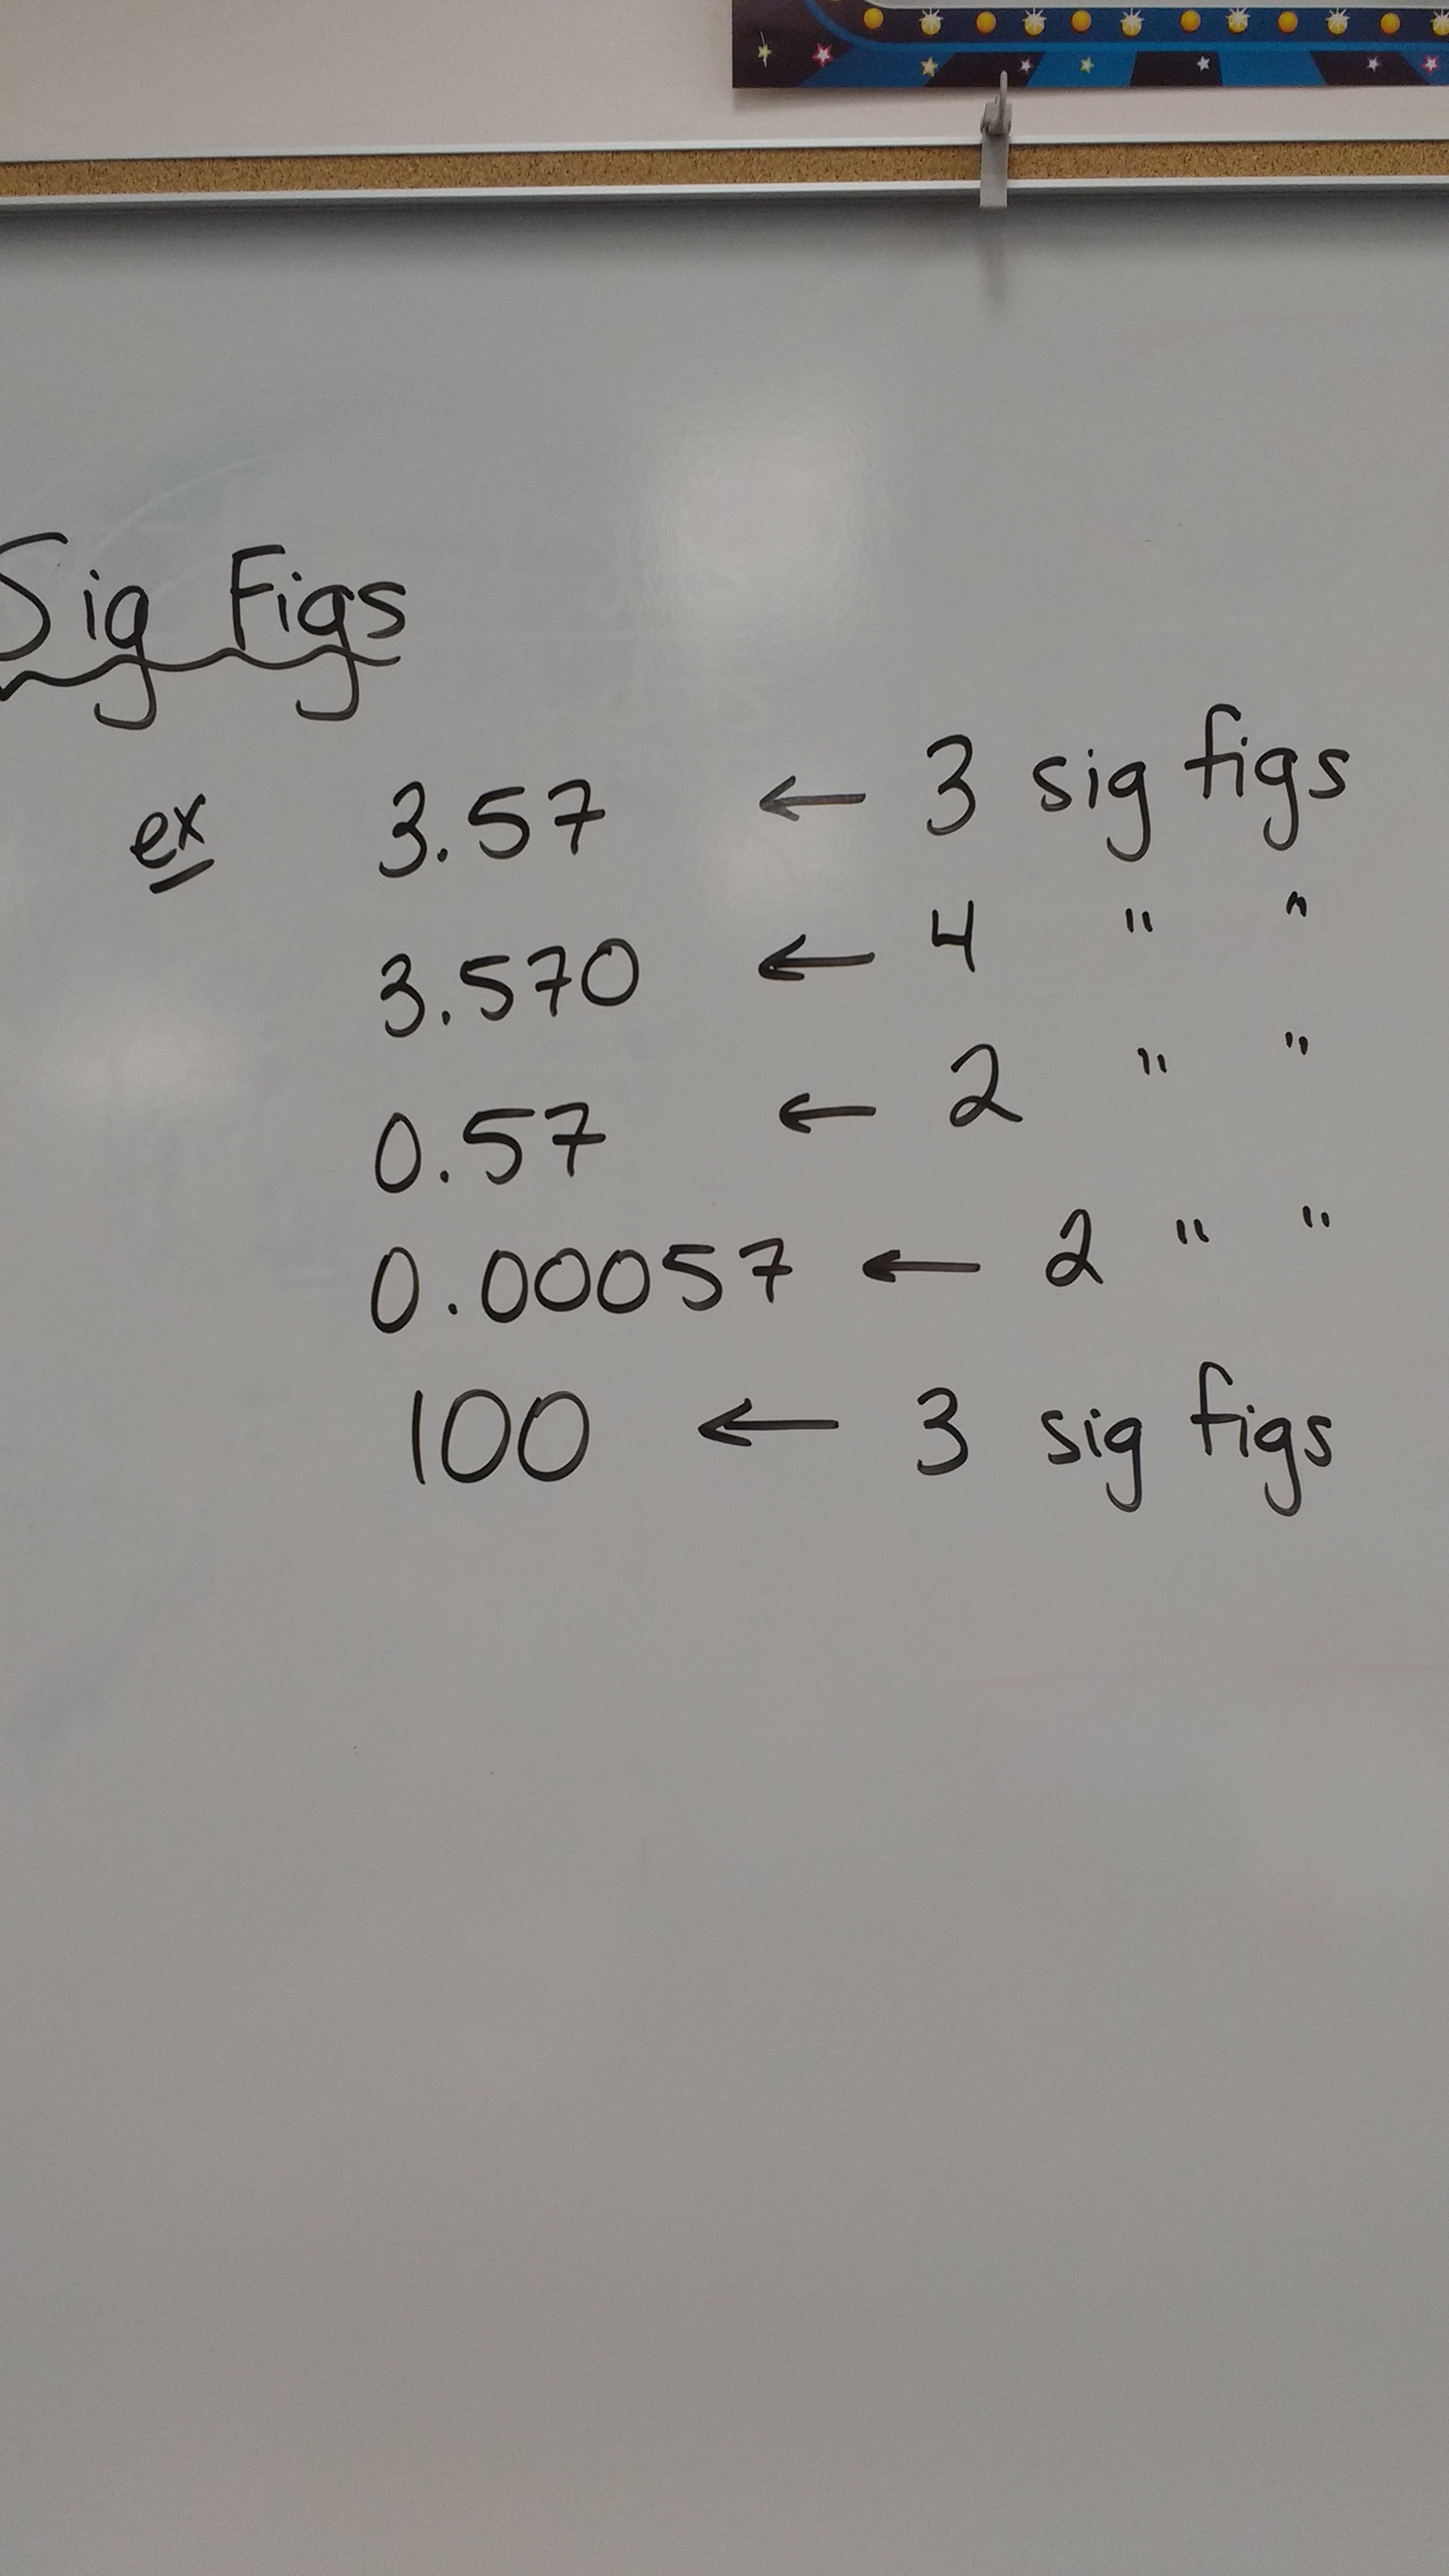 Sig Figs
ex 3.57 ← 3 sig figs
3.570 ← 4 " "
0.57 ← 2 " "
0.00057 ← 2 " "
100 ← 3 sig figs